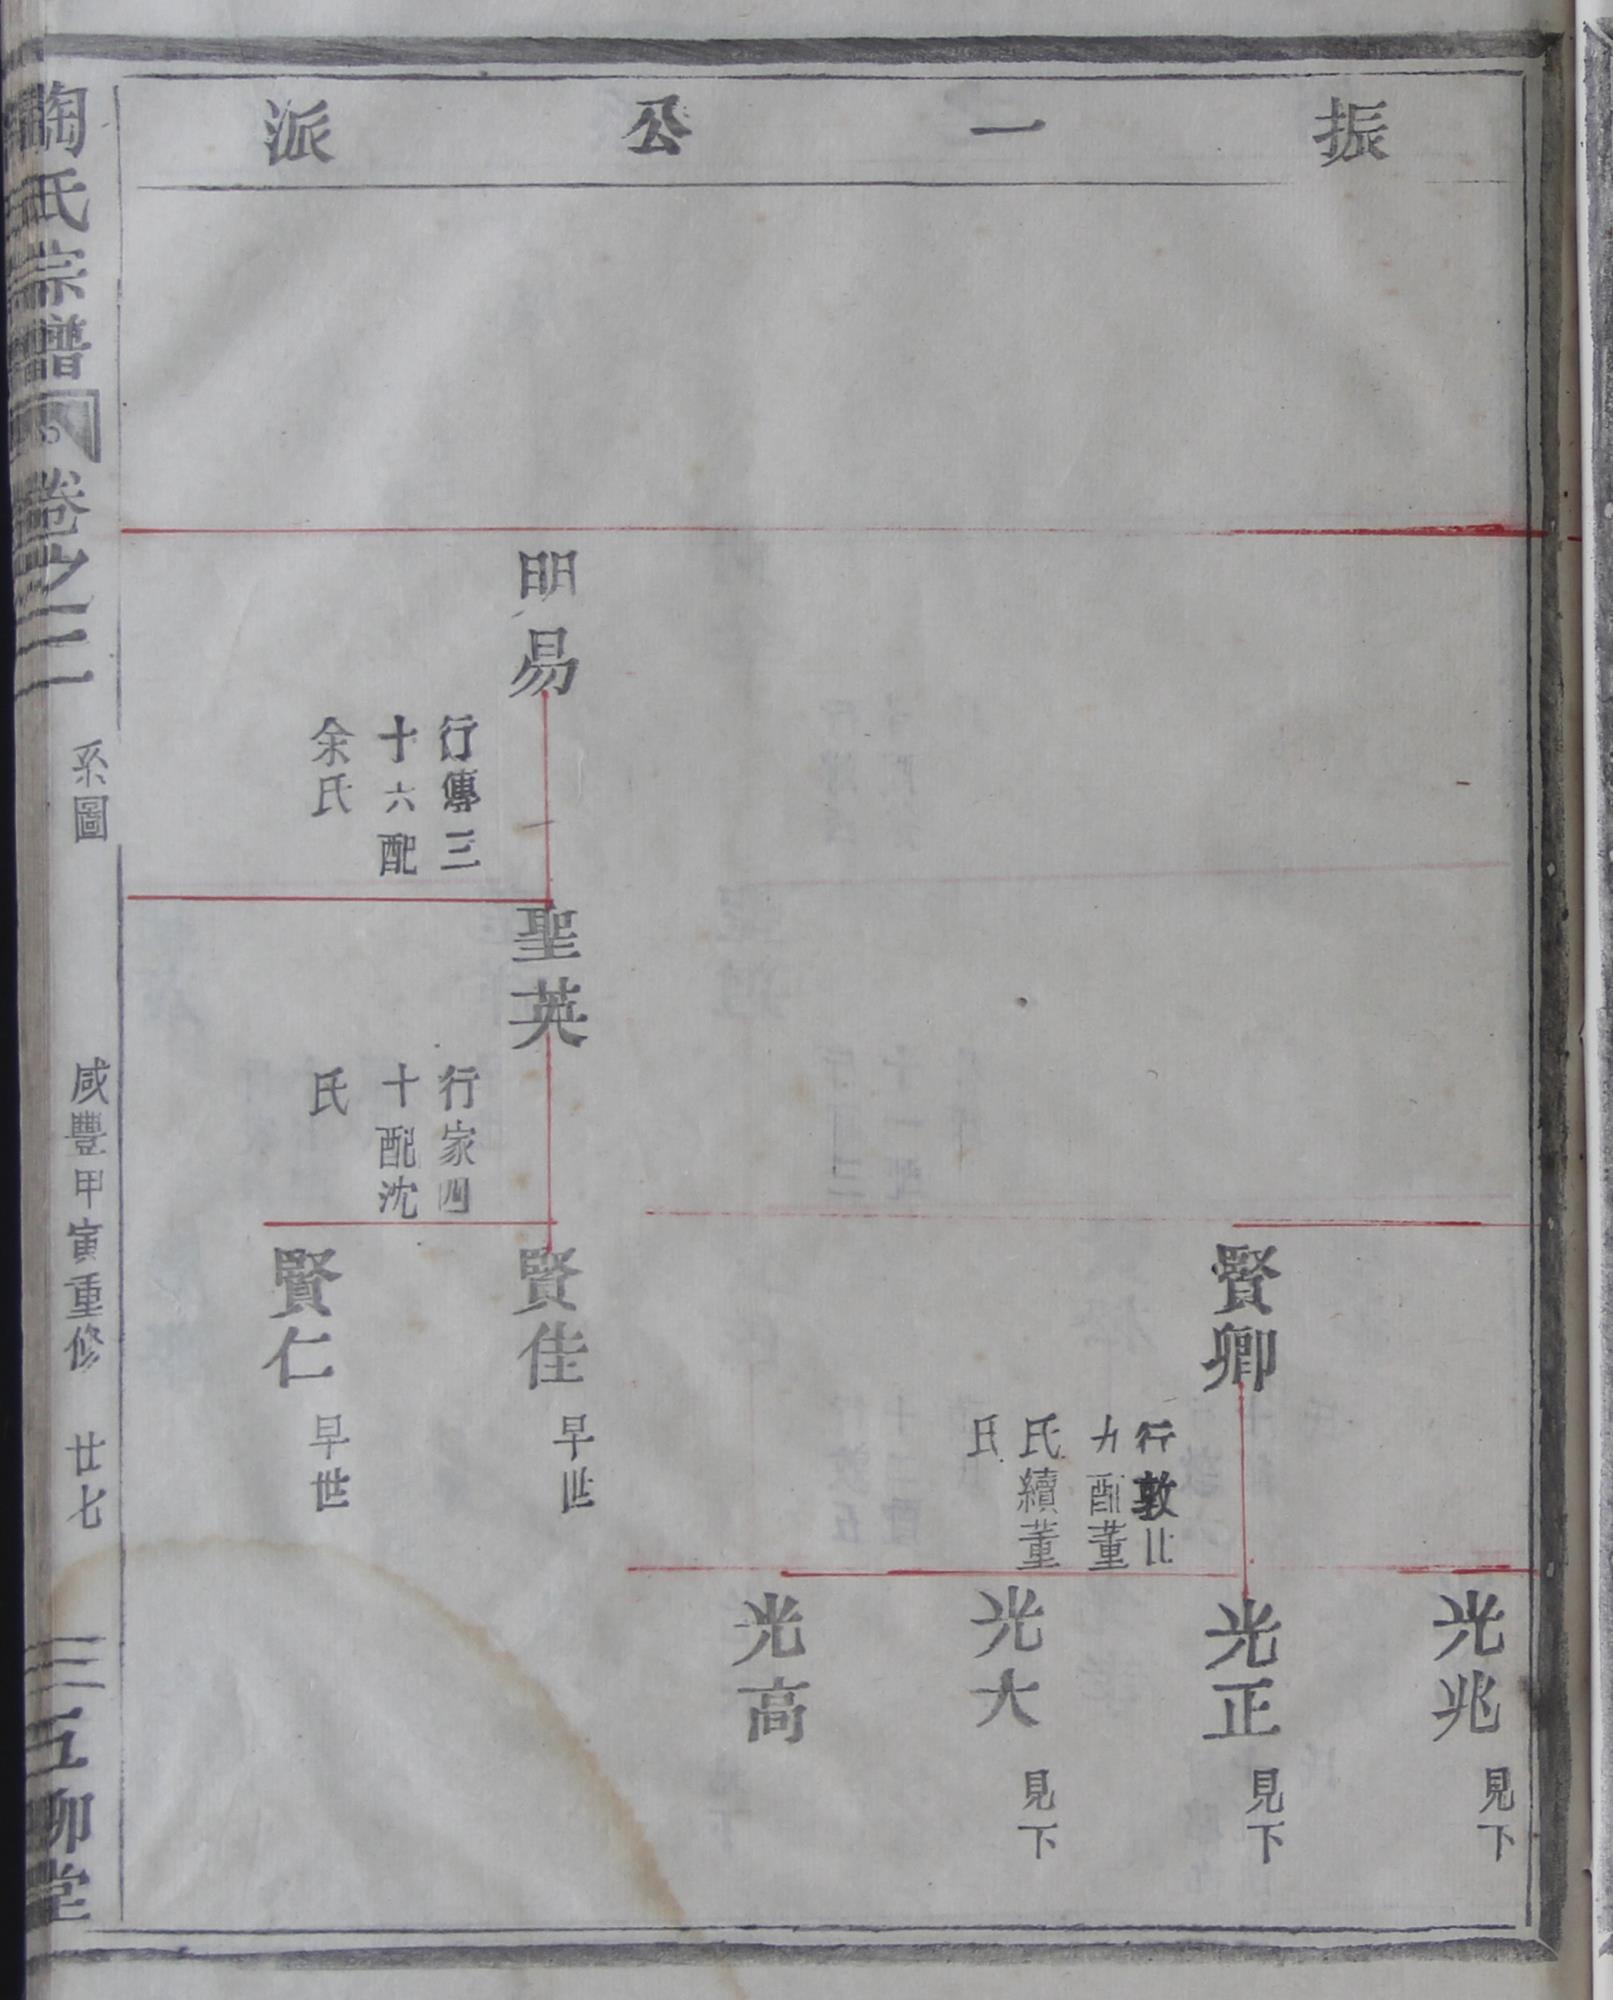 振一公派
光兆
見下
賢卿
行敦
九配董
氏續董
氏
光正
見下
光大
見下
光高
明易
行傳三
十六配
余氏
聖英
行家四
十配沈
氏
賢佳
早世
賢仁
早世
陶氏宗譜
卷之二
系圖
咸豐甲寅重修
廿七
五柳堂